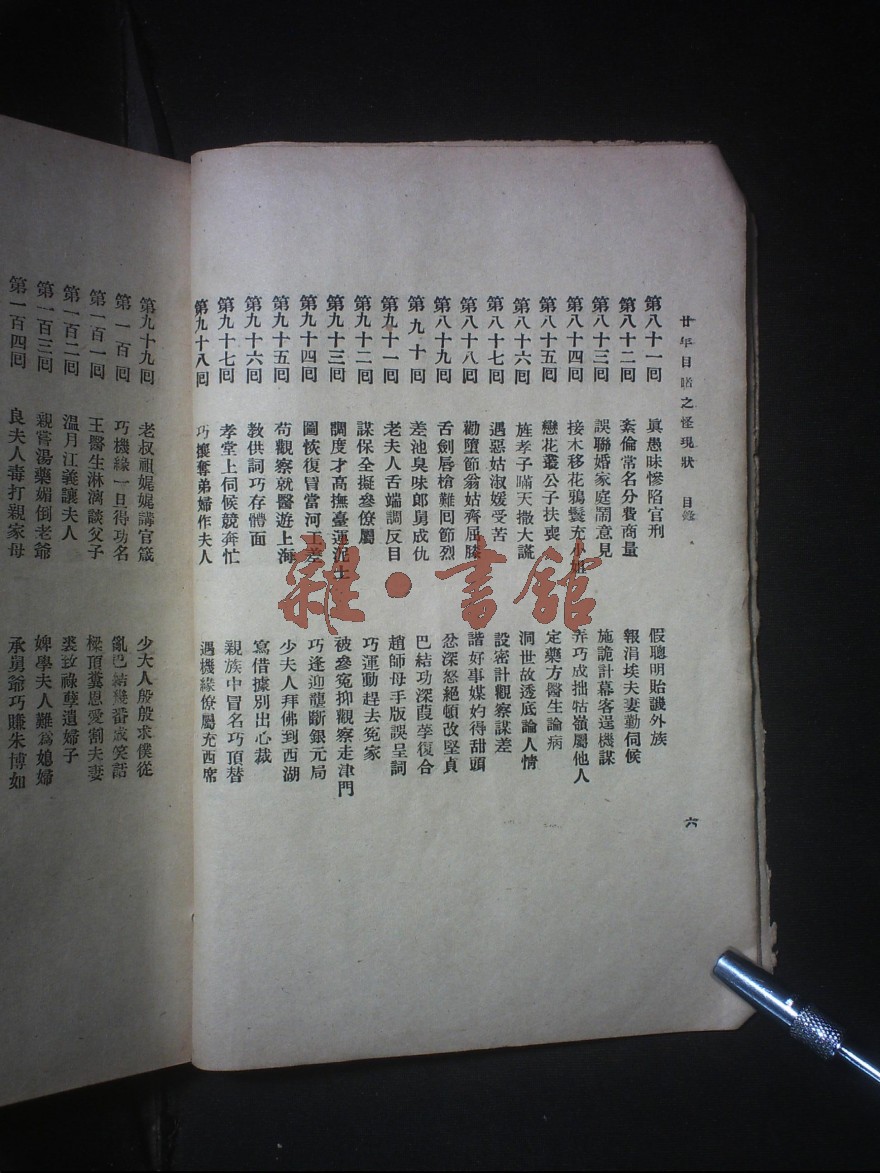 廿年目睹之怪現狀 目錄 六
第八十一囘 眞愚昧慘陷官刑 假聰明貽譏外族
第八十二囘 紊倫常名分費商量 報涓埃夫妻勤伺候
第八十三囘 誤聯婚家庭鬧意見 施詭計幕客逞機謀
第八十四囘 接木移花鴉鬟充小姐 弄巧成拙牯嶺屬他人
第八十五囘 戀花叢公子扶喪 定藥方醫生論病
第八十六囘 旌孝子瞞天撒大謊 洞世故透底論人情
第八十七囘 遇惡姑淑媛受苦 設密計觀察謀差
第八十八囘 勸墮節翁姑齊屈膝 諧好事媒妁得甜頭
第八十九囘 舌劍唇槍難囘節烈 忿深怒絕頓改堅貞
第九十囘 差池臭味郎舅成仇 巴結功深葭莩復合
第九十一囘 老夫人舌端調反目 趙師母手版誤呈詞
第九十二囘 謀保全擬參僚屬 巧運動趕去冤家
第九十三囘 調度才高撫臺運泥土 被參冤抑觀察走津門
第九十四囘 圖恢復冒當河工差 巧逢迎壟斷銀元局
第九十五囘 苟觀察就醫遊上海 少夫人拜佛到西湖
第九十六囘 敎供詞巧存體面 寫借據別出心裁
第九十七囘 孝堂上伺候競奔忙 親族中冒名巧頂替
第九十八囘 巧攘奪弟婦作夫人 遇機緣僚屬充西席
第九十九囘 老叔祖娓娓講官箴 少大人殷殷求僕從
第一百囘 巧機緣一旦得功名 亂巴結幾番成笑話
第一百一囘 王醫生淋漓談父子 樑頂糞恩愛割夫妻
第一百二囘 溫月江義讓夫人 裘致祿孽遺婦子
第一百三囘 親嘗湯藥媚倒老爺 婢學夫人難爲媳婦
第一百四囘 良夫人毒打親家母 承舅爺巧賺朱博如
雜·書館